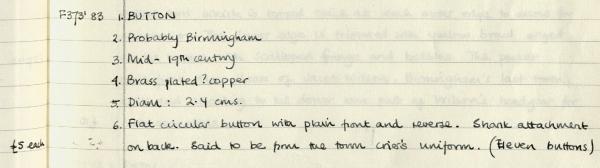 F373'83 1. BUTTON
2. Probably Birmingham
3. Mid-19th century
4. Brass plated? copper
5. Diam: 2.4 cms.
6. Flat circular button with plain front and reverse. Shank attachment
£5 each on back. Said to be from the town crier's uniform. (Eleven buttons)